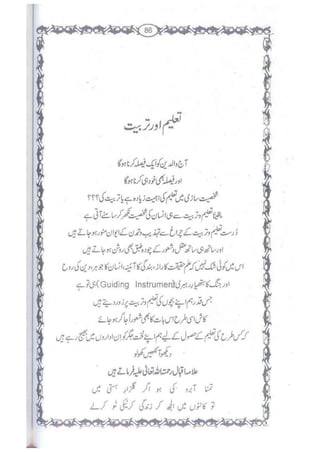 86
تعلیم اور تربیت
آج والدین کو ایک فیصلہ کرنا ہوگا
اور فیصلہ بھی خود ہی کرنا ہوگا
شخصیت سازی میں تعلیم کی اہمیت زیادہ ہے یا تربیت کی؟؟؟
یقیناً تعلیم و تربیت سے ہی انسان کی شخصیت نکھر کر سامنے آتی ہے
درست تعلیم و تربیت کے چراغ سے تہذیب و تمدن کے ایوان منور ہو جاتے ہیں
اور ساتھ ہی ساتھ عقل و شعور کے چودہ طبق بھی روشن ہو جاتے ہیں
اس میں کوئی شک نہیں کہ علم حقیقت کا راز، بندگی کا آئینہ، انسان کا جوہر، دین کی روح
اور جنگ کا ہتھیار، رہبری (Guiding Instrument) ہی تو ہے
جس قدر ہم اپنے بچوں کی تعلیم و تربیت پر زور دیتے ہیں
کاش اسی طرح اس بات کا بھی شعور اُجاگر ہو جائے
کہ کس طرح کی تعلیم کے حصول کے لیے ہم اپنے لخت جگر کو ان اداروں میں بھیج رہے ہیں
دیکھو آنکھیں کھولو
علامہ اقبال رحمۃ اللہ تعالیٰ علیہ فرماتے ہیں
تمنا آبرو کی ہو اگر گلزار ہستی میں
تو کانٹوں میں الجھ کر زندگی کرنیکی خو کر لے